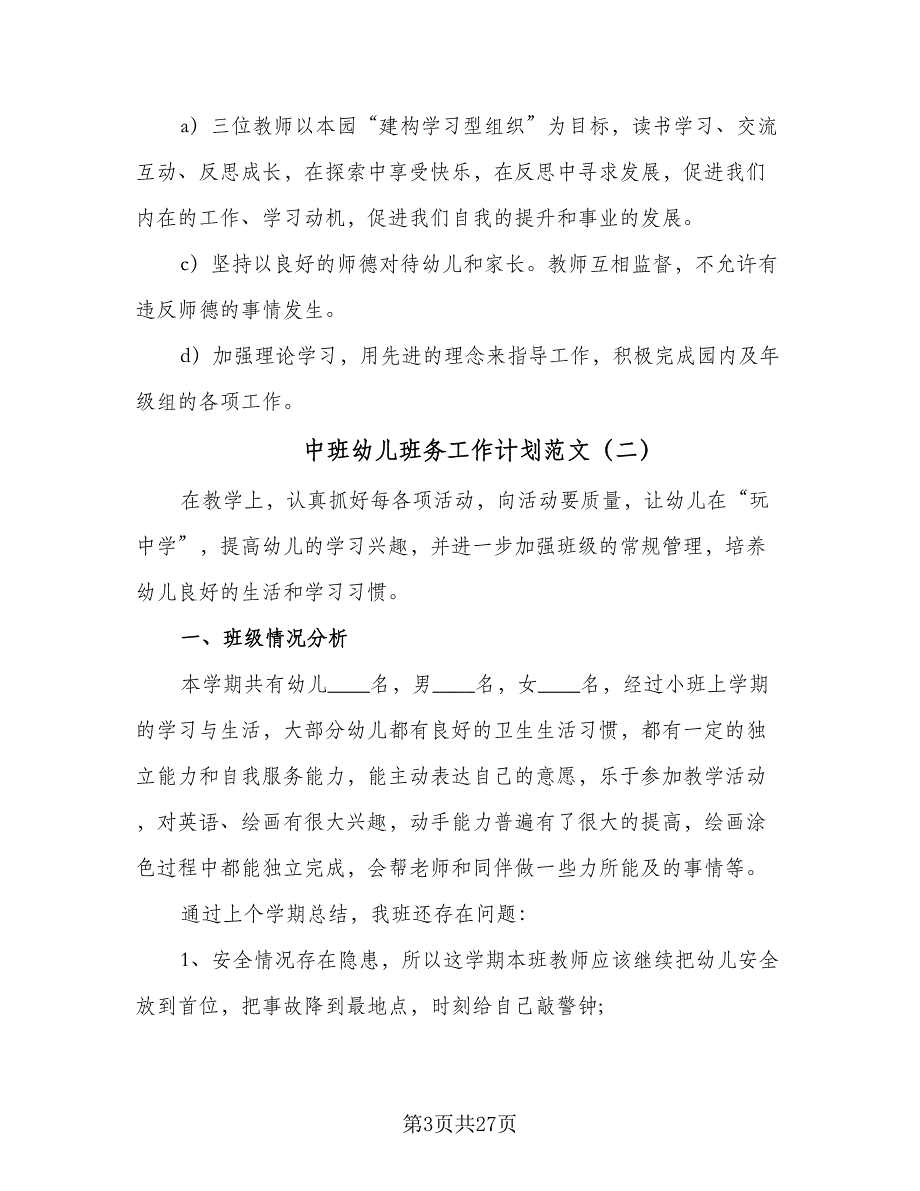 a）三位教师以本园“建构学习型组织”为目标，读书学习、交流
互动、反思成长，在探索中享受快乐，在反思中寻求发展，促进我们
内在的工作、学习动机，促进我们自我的提升和事业的发展。
c）坚持以良好的师德对待幼儿和家长。教师互相监督，不允许有
违反师德的事情发生。
d）加强理论学习，用先进的理念来指导工作，积极完成园内及年
级组的各项工作。
中班幼儿班务工作计划范文（二）
在教学上，认真抓好每各项活动，向活动要质量，让幼儿在“玩
中学”，提高幼儿的学习兴趣，并进一步加强班级的常规管理，培养
幼儿良好的生活和学习习惯。
一、班级情况分析
本学期共有幼儿____名，男____名，女____名，经过小班上学期
的学习与生活，大部分幼儿都有良好的卫生生活习惯，都有一定的独
立能力和自我服务能力，能主动表达自己的意愿，乐于参加教学活动
，对英语、绘画有很大兴趣，动手能力普遍有了很大的提高，绘画涂
色过程中都能独立完成，会帮老师和同伴做一些力所能及的事情等。
通过上个学期总结，我班还存在问题：
1、安全情况存在隐患，所以这学期本班教师应该继续把幼儿安全
放到首位，把事故降到最地点，时刻给自己敲警钟;
第3页共27页